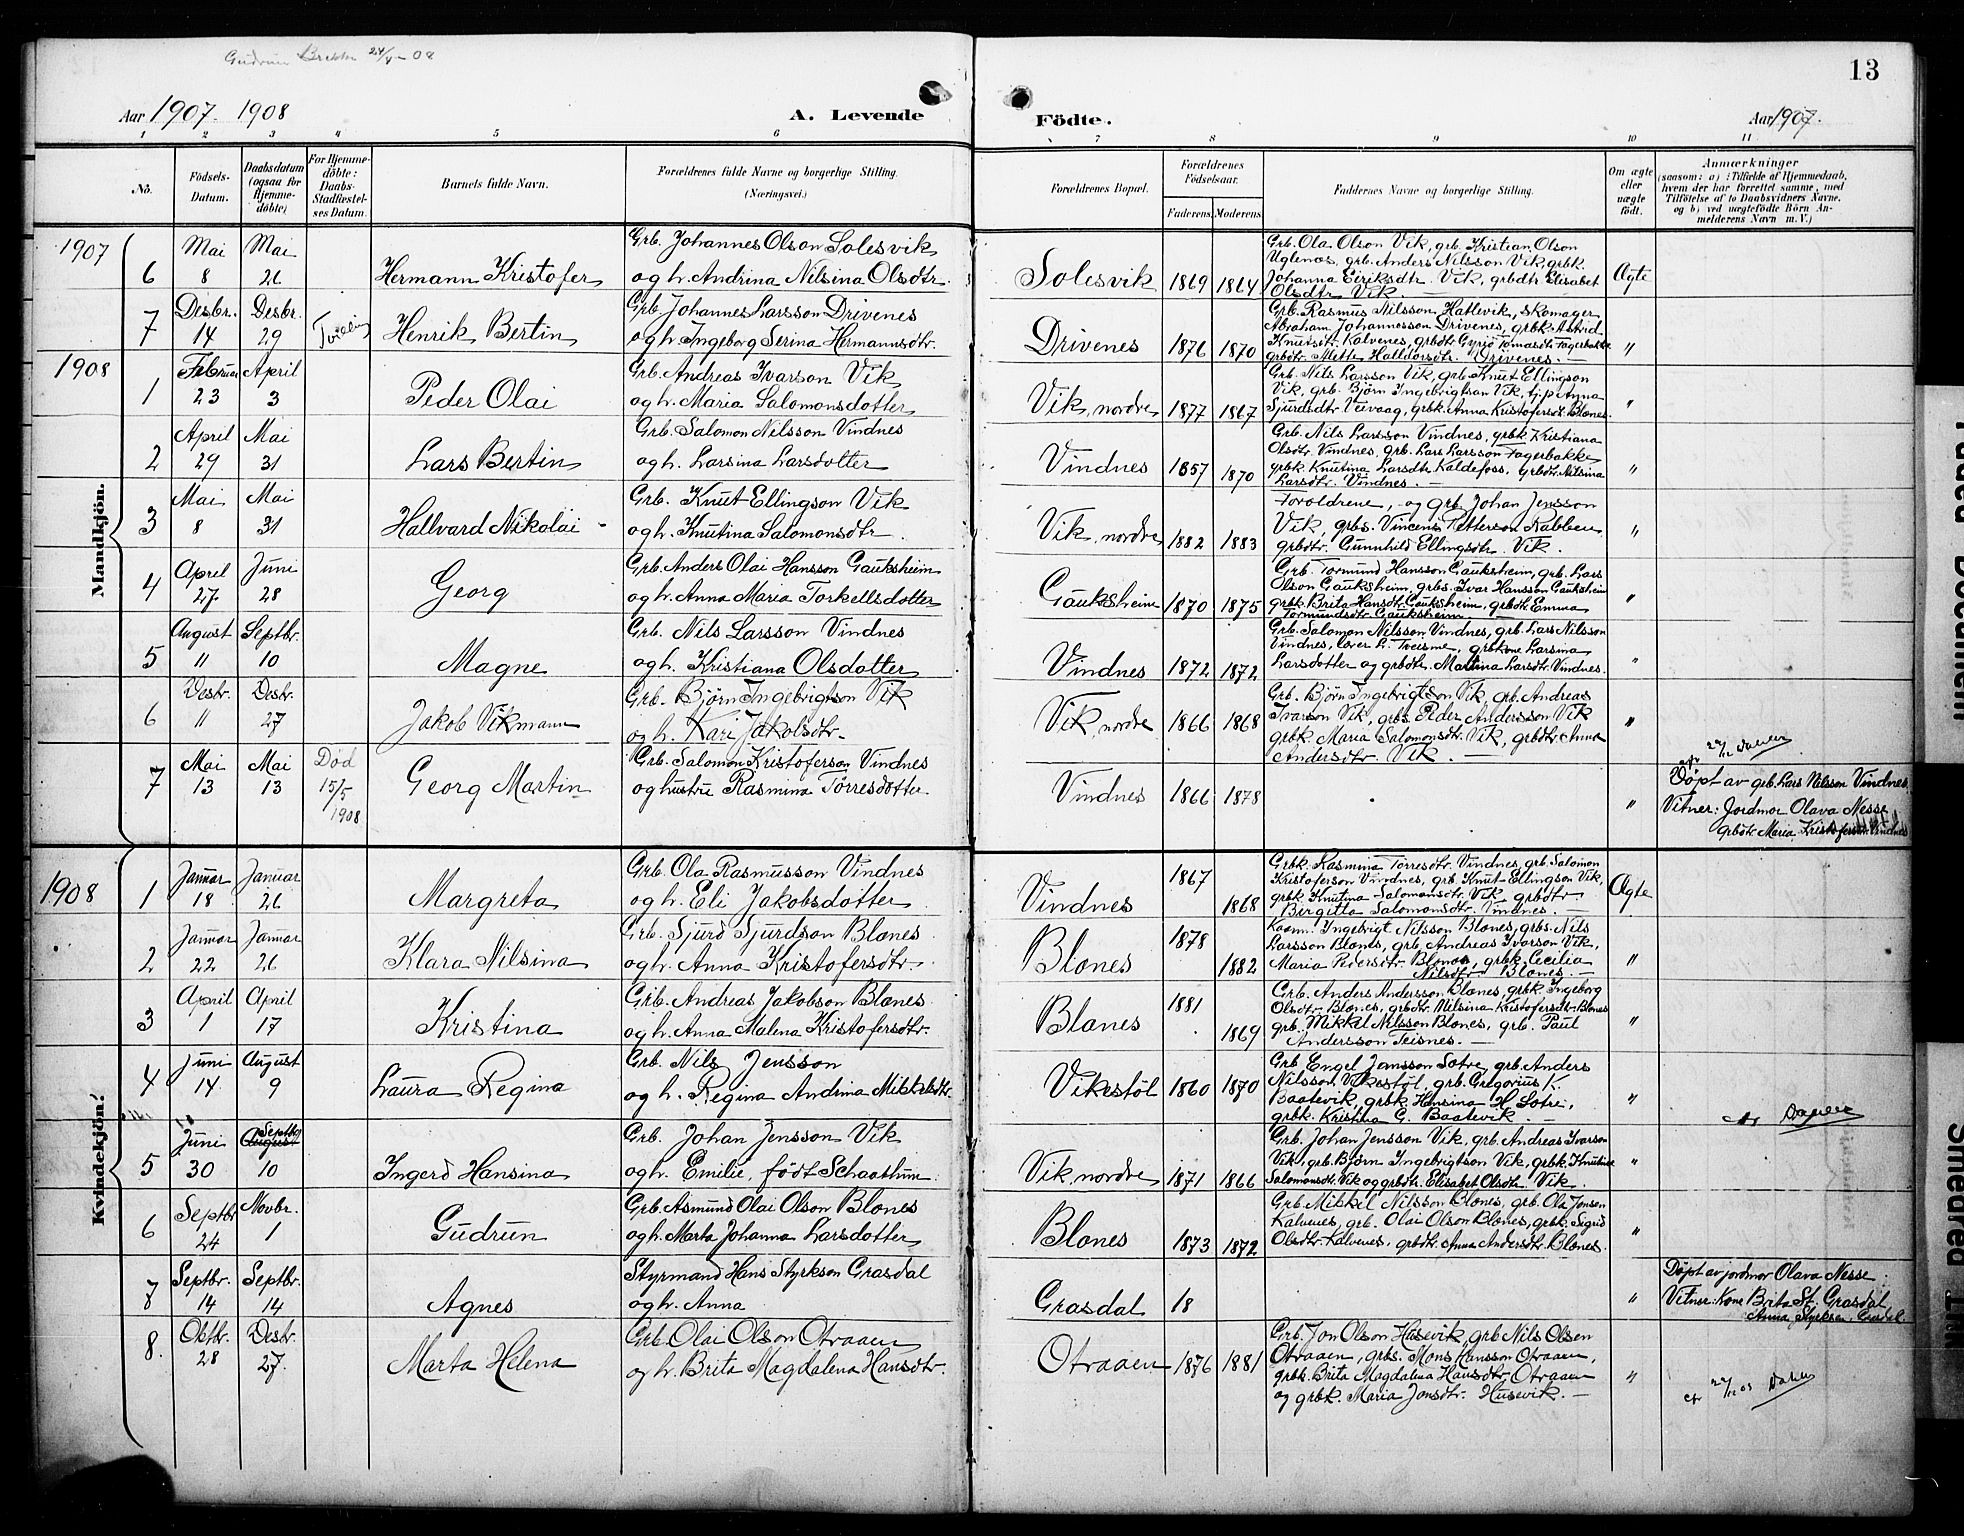 13
Aar 1907. 1908
A. Levende Födte.
Aar 1907.
1 2 3 4 5 6 7 8 9 10 11
No.
Födsels-Datum.
Daabsdatum (ogsaa for Hjemme-döbte)
For Hjemme-döbte: Daabs-Stadfæstel-ses Datum.
Barnets fulde Navn.
Forældrenes fulde Navne og borgerlige Stilling. (Næringsvei.)
Forældrenes Bopæl.
Forældrenes Födselsaar.
Faderens. Moderens.
Faddernes Navne og borgerlige Stilling.
Om ægte eller uægte födt.
Anmærkninger
(saasom: a) : Tilfælde af Hjemmedaab,
hvem der har forrettet samme, med
Tilföielse af to Daabsvidners Navne.
og b) ved uægtefödte Börn An-
melderens Navn m. V.)
Mandkjön.
1907
6 Mai 8 Mai 26 Hermann Kristofer
Grb. Johannes Olson Solesvik
og h. Andrina Nilsina Olsdtr.
Solesvik 1869 1864
Grb. Ola Olson Vik, grb. Kristian Olson
Uglenes, grb. Anders Nilsson Vik, grbk.
Johanna Eiriksdtr. Vik, grbdtr. Elisabet
Olsdtr. Vik. —
Ægte
7 Desbr. 14 Desbr. 29 Tvilling Henrik Bertin
Grb. Johannes Larsson Drivenes
og h. Ingeborg Serina Hermannsdtr.
Drivenes 1876 1870
Grb. Rasmus Nilsson Hatlevik, skomager
Abraham Johannesson Drivenes, grbk. Astrid
Knutsdtr. Kalvenes, grbdtr. Gyrid Tomasdtr. Fagerbakke
grbdtr. Mette Halldorsdtr. Drivenes. —
"
1908
1 Februar 23 April 3 Peder Olai
Grb. Andreas Ivarson Vik
og h. Maria Salomonsdotter
Vik, nordre 1877 1867
Grb. Nils Larsson Vik, grb. Knut Ellingson
Vik, grb. Björn Ingebrigtson Vik, tj.p. Anna
Sjurdsdtr. Veivaag, grbk. Anna Kristofersdt. Blænes.
"
2 April 29 Mai 31 Lars Bertin
Grb. Salomon Nilsson Vindnes
og h. Larsina Larsdotter
Vindnes 1857 1870
Grb. Nils Larsson Vindnes, grbk. Kristiana
Olsdtr. Vindnes, grb. Lars Larsson Fagerbakke
grbk. Knutina Larsdtr. Kaldefoss, grbdtr. Nilsina
Larsdtr. Vindnes. —
"
3 Mai 8 Mai 31 Hallvard Nikolai
Grb. Knut Ellingson Vik
og h. Knutina Salomonsdtr.
Vik, nordre 1882 1883
Foreldrene, og grb. Johan Jensson
Vik, grbs. Vincens Petterson Rabben
grbdtr. Gunnhild Ellingsdtr. Vik.
"
4 April 27. Juni 28 Georg
Grb. Anders Olai Hansson Gauksheim
og h. Anna Maria Torkellsdotter
Gauksheim 1870 1875
Grb. Tormund Hansson Gauksheim, grb. Lars
Olson Gauksheim, grbs. Ivar Hansson Gauksheim
grbk. Brita Hansdtr. Gauksheim, grbdtr. Emma
Tormundsdtr. Gauksheim. —
"
5 August 11 Septbr. 10 Magne
Grb. Nils Larsson Vindnes
og h. Kristiana Olsdotter
Vindnes 1872 1872
Grb. Salomon Nilsson Vindnes, grb. Lars Nilsson
Vindnes, lærer L. Tveisme, grbkone Larsina
Larsdotter og grbdtr. Martina Larsdtr. Vindnes.
"
6 Desbr. 11 Desbr. 27 Jakob Vikmann
Grb. Björn Ingebrigtson Vik
og h. Kari Jakobsdtr.
Vik, nordre 1866 1868
Grb. Björn Ingebrigtson Vik, grb. Andreas
Ivarson Vik, grbs. Peder Andersson Vik
grbk. Maria Salomonsdtr. Vik, grbdtr. Anna
Andersdtr. Vik. —
"
7 Mai 13 Mai 13 Död 15/5 1908 Georg Martin
Grb. Salomon Kristoferson Vindnes
og hustru Rasmina Torresdotter.
Vindnes 1866 1878
"
Döpt av grb. Lars Nilsson Vindnes.
Vitner: Jordmor Olava Nesse
grbdtr. Maria Kristofersdtr. Vindnes
Kvindekjön.
1908
1 Januar 18 Januar 26 Margreta
Grb. Ola Rasmusson Vindnes
og h. Eli Jakobsdotter
Vindnes 1867 1868
Grbk. Rasmina Torresdtr. Vindnes, grb. Salomon
Kristoferson Vindnes, grb. Knut Ellingson Vik,
grbk. Knutina Salomonsdtr. Vik, grbdtr.
Birgitta Salomonsdtr. Vindnes. —
Ægte
2 Januar 22 Januar 26 Klara Nilsina
Grb. Sjurd Sjurdson Blænes
og h. Anna Kristofersdtr.
Blænes 1878 1882
Kaarm. Ingebrigt Nilsson Blænes, grbs. Nils
Larsson Blænes, grb. Andreas Ivarson Vik,
Maria Pedersdtr. Blænes, grbk. Cecilia
Nilsdtr. Blænes. —
"
3 April 1 April 17 Kristina
Grb. Andreas Jakobson Blænes
og h. Anna Malena Kristofersdtr.
Blænes 1881 1869
Grb. Anders Andersson Blænes, grbk. Ingeborg
Olsdtr. Blænes, grbdtr. Nilsina Kristofersdtr. Blænes
grb. Mikkel Nilsson Blænes, grb. Paul
Andersson Teisnes. —
"
4 Juni 14. August 9 Laura Regina
Grb. Nils Jensson
og h. Regina Andina Mikkelsdtr.
Vikestöl 1860 1870
Grb. Engel Jansson Sotre, grb. Anders
Nilsson Vikestöl, grb. Gregorius K.
Baatevik, grbk. Hansina H. Sotre,
grbk. Kristina G. Baatevik.
"
5 Juni 30 August Septbr. 10 Ingerd Hansina
Grb. Johan Jensson Vik
og h. Emilie, födt Schaathun.
Vik, nordre 1871 1866
Grb. Johan Jensson Vik, grb. Andreas Ivarson
Vik, grb. Björn Ingebrigtson Vik, grbk. Knutine
Salomonsdtr. Vik og grbdtr. Elisabet Olsdtr. Vik.
"
6 Septbr. 24 Novbr. 1 Gudrun
Grb. Asmund Olai Olson Blænes
og h. Marta Johanna Larsdotter
Blænes 1873 1872
Grb. Mikkel Nilsson Blænes, grb. Ola Jonsen
Kalvenes, grb. Olai Olson Blænes, grbk. Sigrid
Olsdtr. Kalvenes, grbdtr. Anna Andersdtr. Blænes.
"
7 Septbr. 14 Septbr. 14 Agnes
Styrmand Hans Styrkson Grasdal
og h. Anna
Grasdal 18
"
Döpt av jordmor Olava Nesse.
Vitner: Kone Brita St. Grasdal,
Anna Styrksen, Grasdal.
8. Oktbr. 28 Desbr. 27. Marta Helena
Grb. Olai Olson Otraaen
og h. Brita Magdalena Hansdtr.
Otraaen 1876 1881
Grb. Jon Olson Husevik, grb. Nils Olsen
Otraaen, grbs. Mons Hansson Otraaen,
grbk. Brita Magdalena Hansdtr. Otraaen
og grbk. Maria Jonsdtr. Husevik. —
"
Faded Document
Smeared Ink